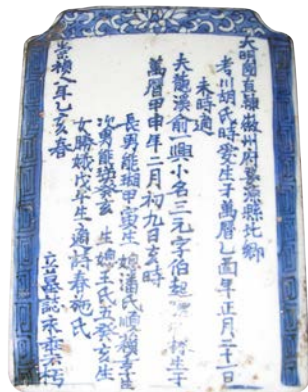 大明國直隸徽州府婺源縣北鄉
考川胡氏時愛生于萬曆乙酉年正月二十一日
未時適
夫龍溪俞一興小名三元字伯起 生于
萬曆甲申年二月初九日亥時
長男能 甲寅生 媳潘氏順
次男能 癸亥生 媳 氏五癸亥生
女勝娥戊午生適詩春施氏
崇禎八年乙亥春 立墓誌